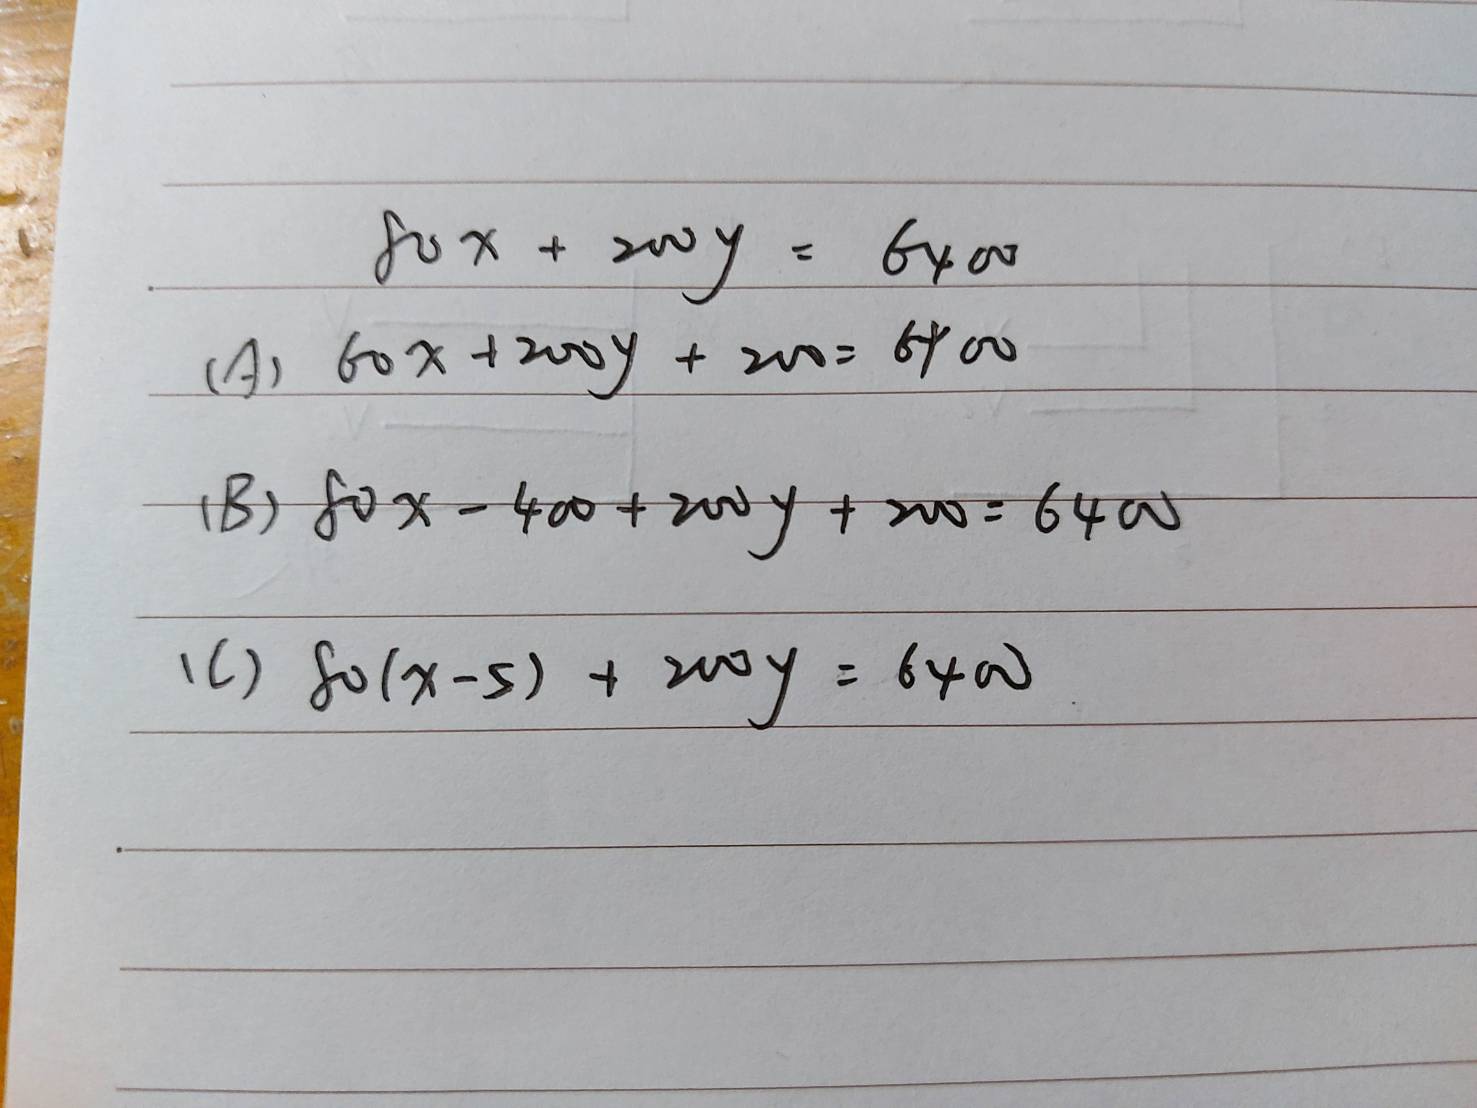 80x + 200y = 6400
(A) 60x + 200y + 200 = 6400
(B) 80x - 400 + 200y + 200 = 6400
(C) 80(x-5) + 200y = 6400